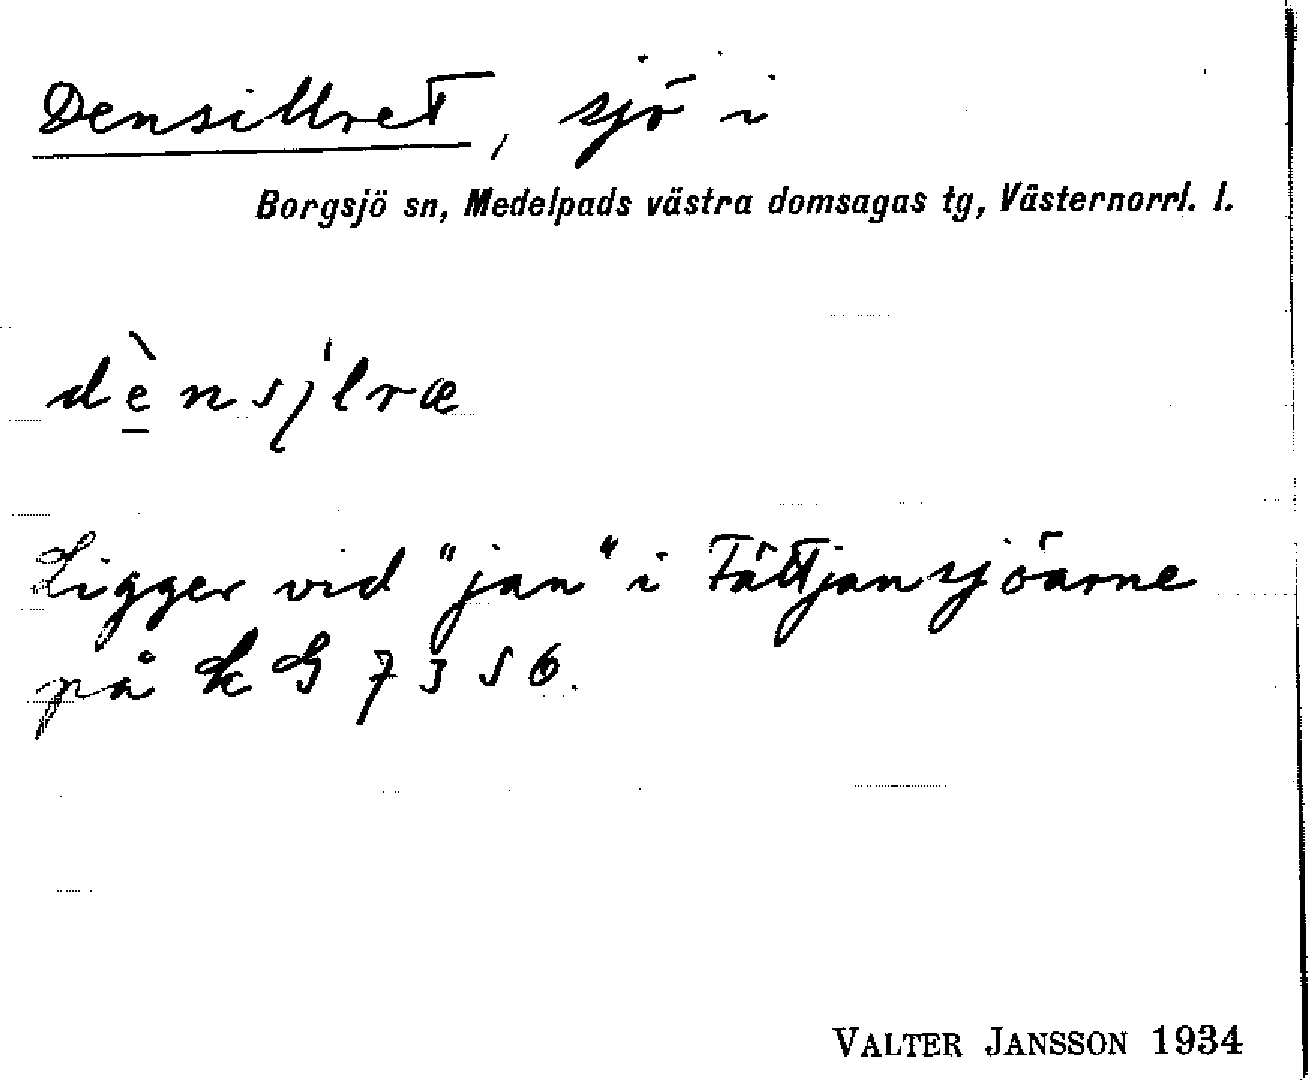 Densillret, sjö i
Borgsjö sn, Medelpads västra domsagas tg, Västernorrl. l.
dènsı̣lræ
Ligger vid "jan" i Fältjansjöarne
på kG 7356.
VALTER JANSSON 1934